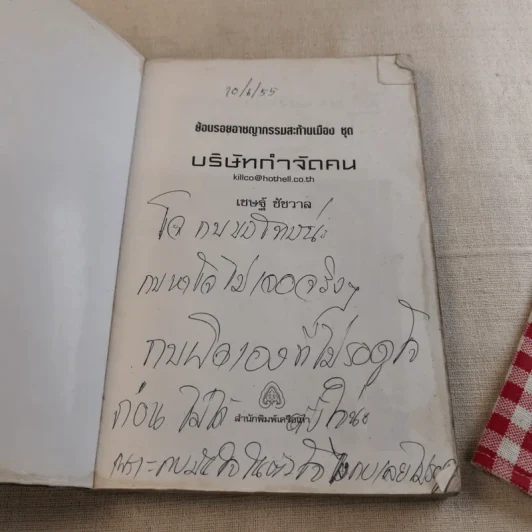 20/6/55
ย้อนรอยอาชญากรรมสะท้านเมือง ชุด
บริษัทกำจัดคน
killco@hothell.co.th
เชษฐ์ ชัชวาล
โจ กบขอโทษนะ
กบหาโจไม่เจอจริงๆ
กบผิดเองที่ไม่รอดูโจ
ก่อน ไม่ได้
สำนักพิมพ์เครือเถา
เพราะกบมั่นใจในตัวโจ กบเลยไม่